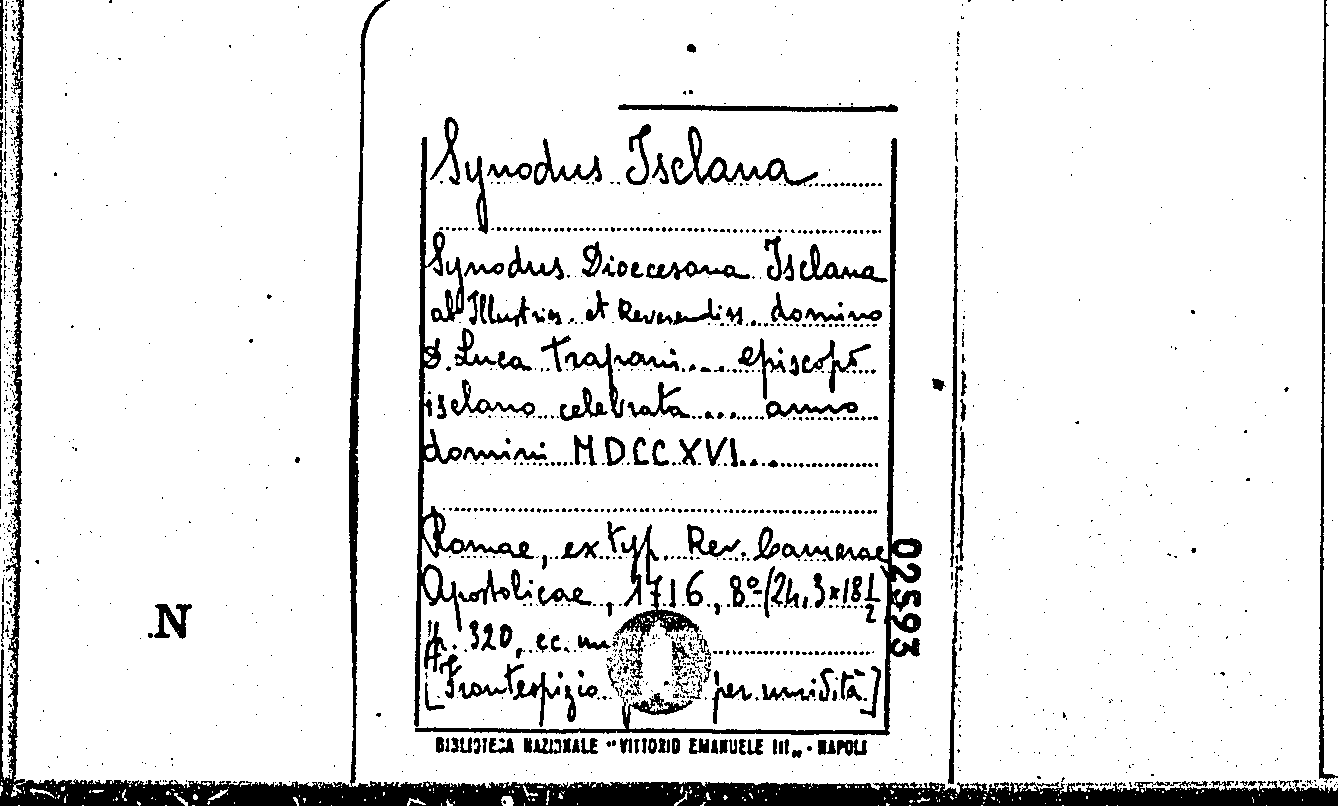 Synodus Isclana
Synodus Dioecesana Isclana
ab Illustriss. et Reverendiss. domino
D. Luca Trapani... episcopo
isclano celebrata... anno
domini MDCCXVI...
Romae, ex typ. Rev. Camerae
Apostolicae, 1716, 8º (24,3x18½
p. 320, ec.
[Frontespizio per umidità]
BIBLIOTECA NAZIONALE "VITTORIO EMANUELE III„ - NAPOLI
02593
.N